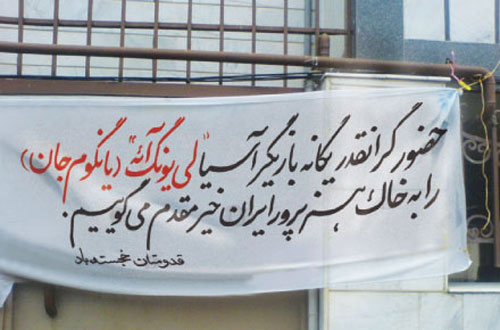 حضور گرانقدر یگانه بازیگر آسیا "لی یونگ آئه" (یانگوم جان)
را به خاک هنر پرور ایران خیر مقدم می گوییم.
قدومتان خجسته باد